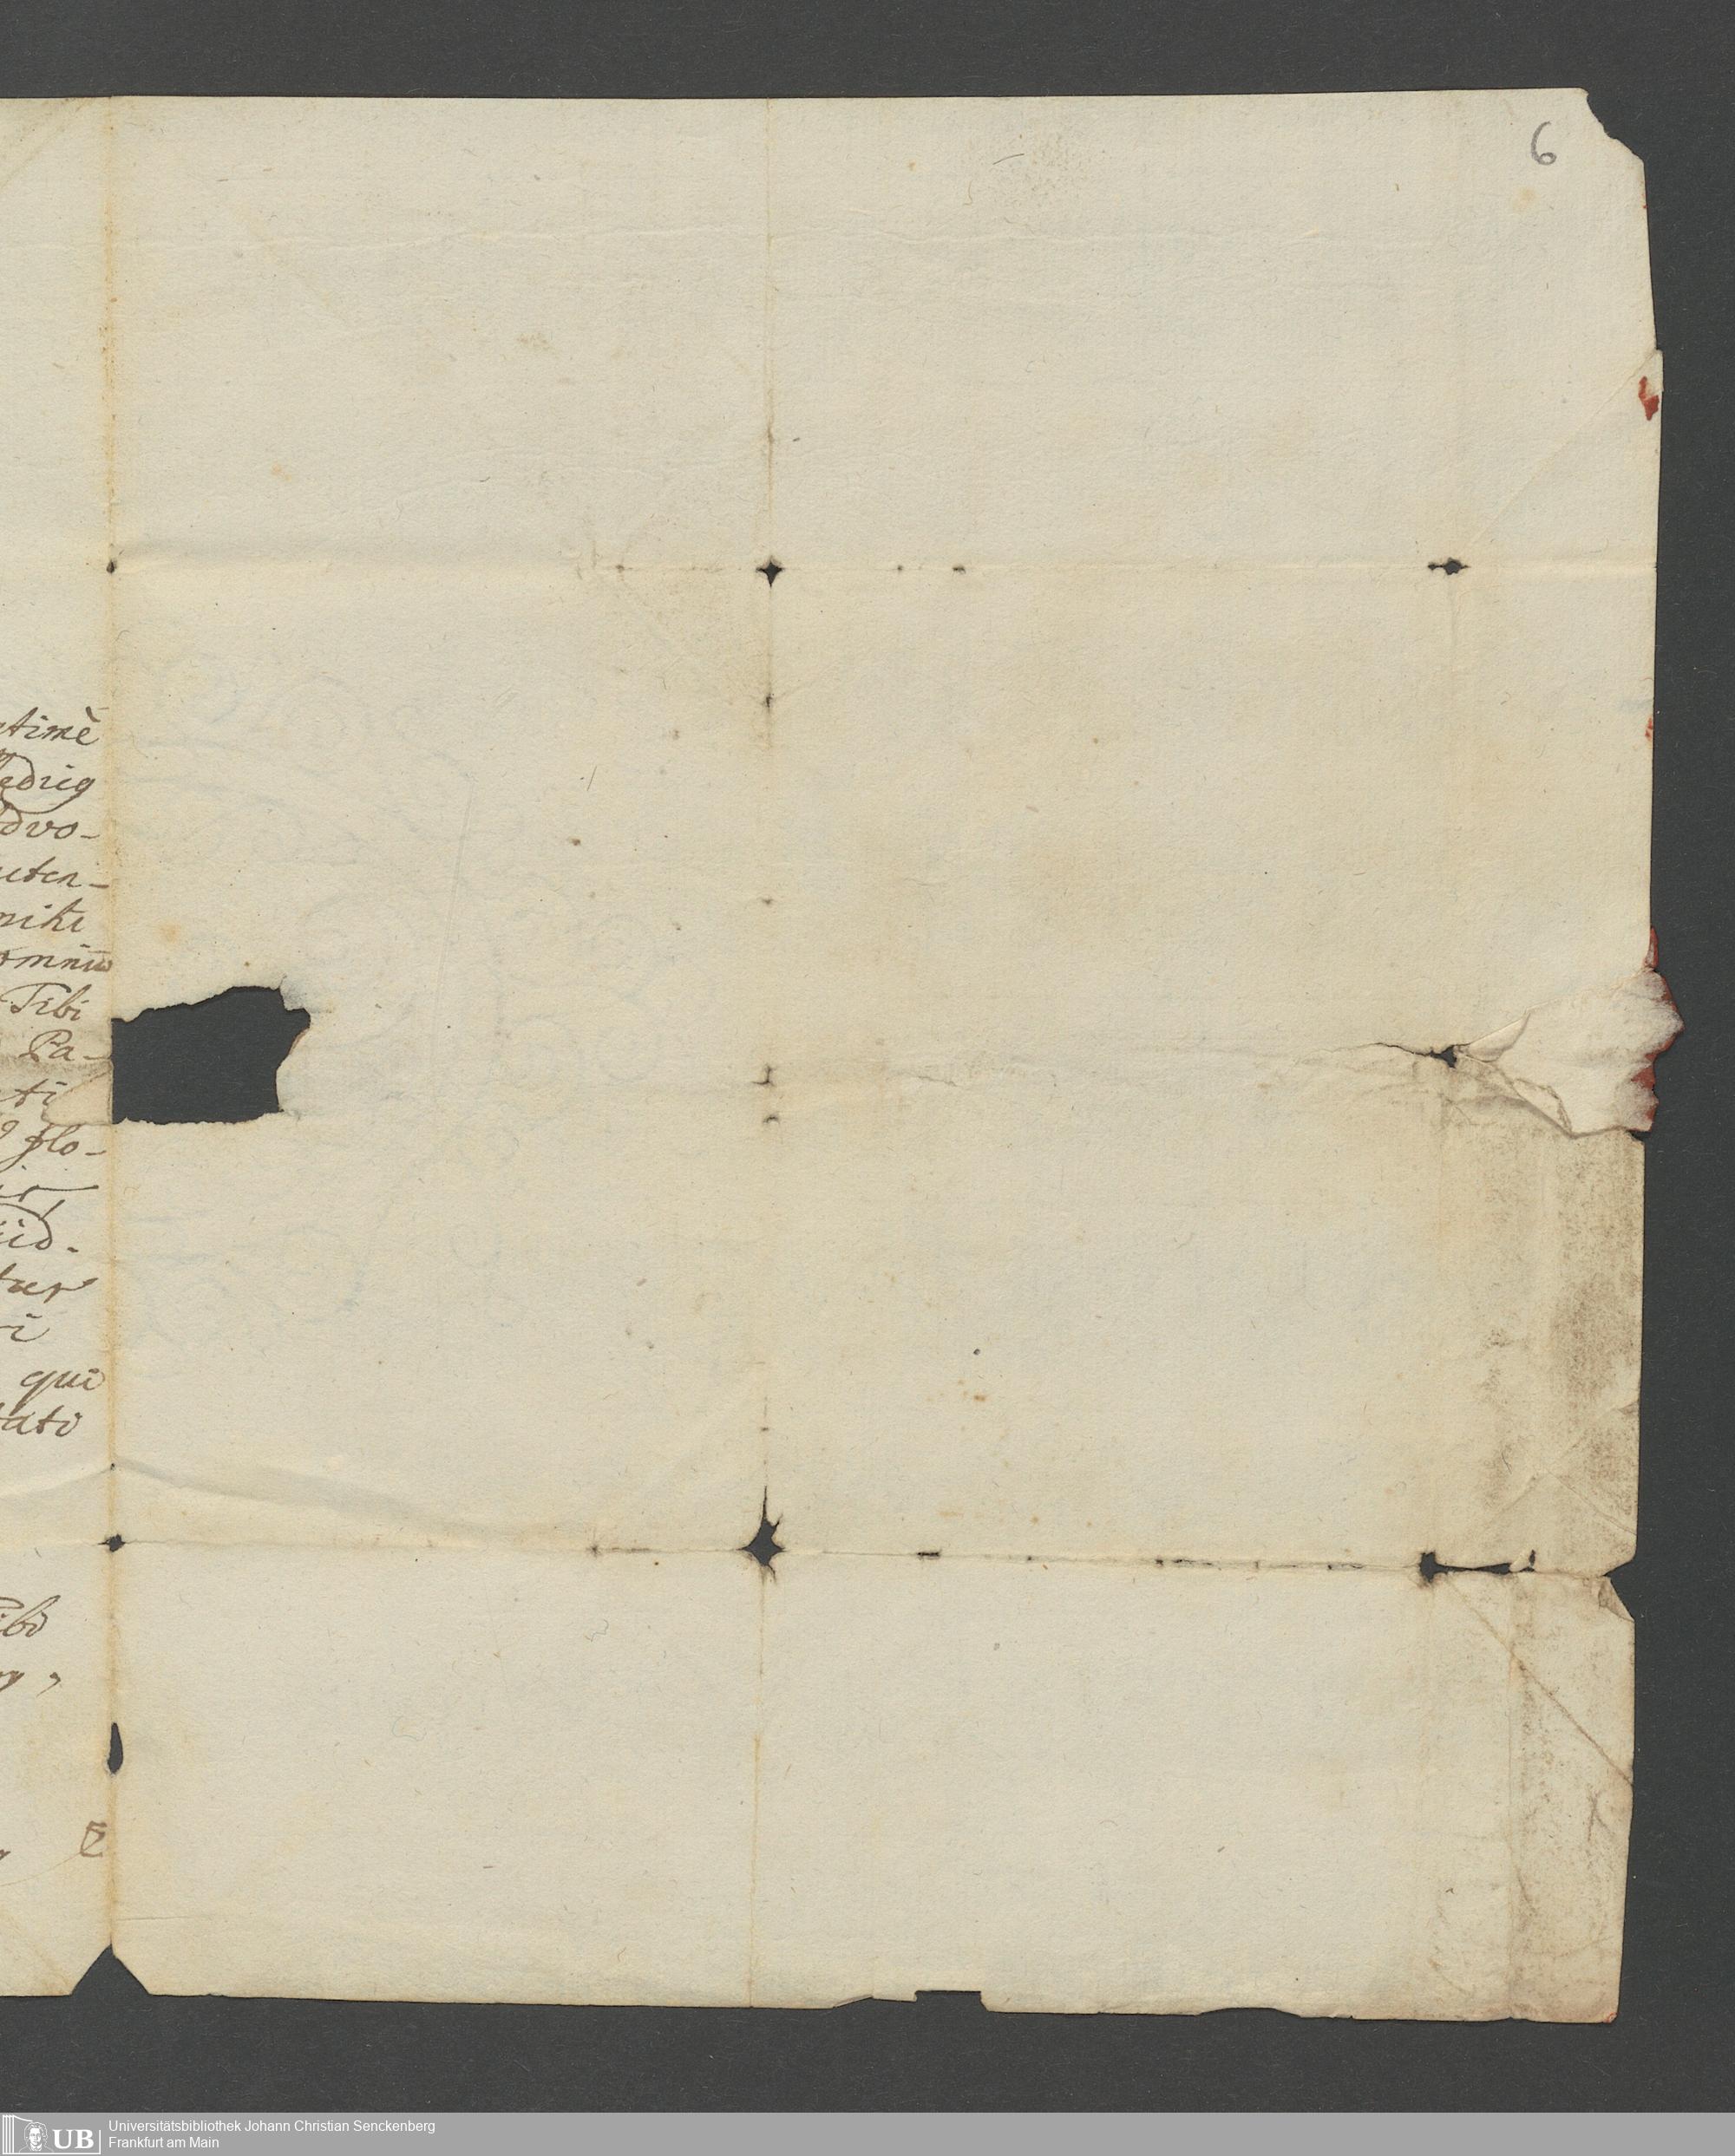 6
timè
edrig
dvo-
uten-
mihi
omniū
Tibi
Pa-
ti
flo-
id.
tur
qui
tati
ibi
Universitätsbibliothek Johann Christian Senckenberg
Frankfurt am Main
UB